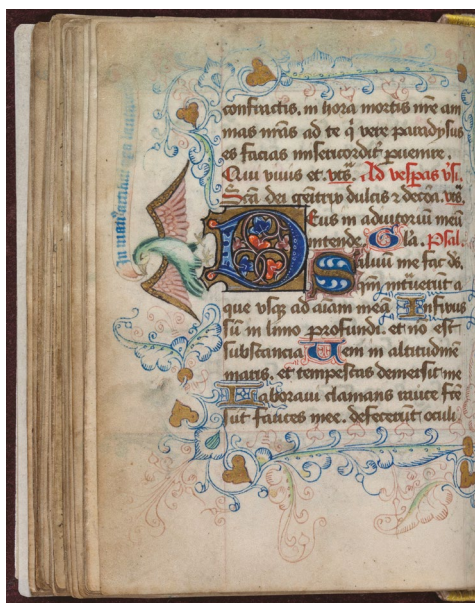 confractis. in hora mortis nre am
mas nras ad te q vere paradysus
es facias misericordit puenire.
Qui viuis et. vts. Ad vespas vsi.
Sca dei genitrix dulcis 2 decora. vts.
Deus in adiutoriū meū
intende. Gla. Psal.
Saluum me fac ds.
qm intrauerūt a
que vsq ad aiam meā Infixus
sū in limo profundi. et no est
substancia Veni in altitudinē
maris. et tempestas demersit me
Laboraui clamans rauce
sūt fauces mee. defecerūt oculi